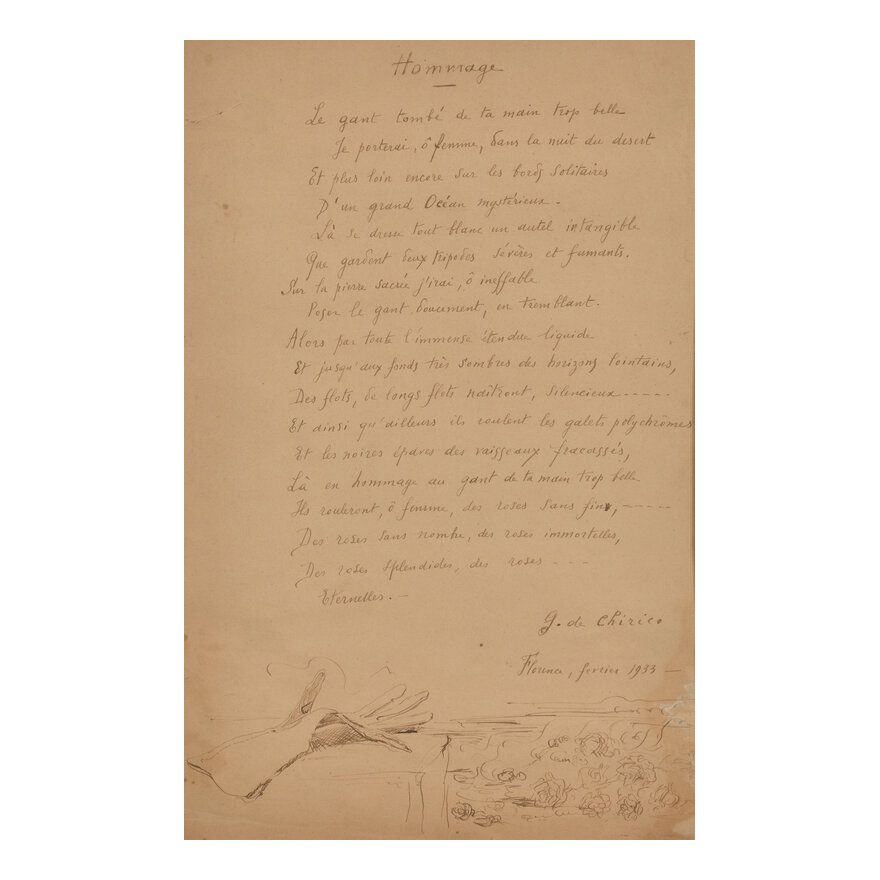 Hommage
Le gant tombé de ta main trop belle
Je porterai, ô femme, dans la nuit du desert
Et plus loin encore sur les bords solitaires
D'un grand Océan mystérieux.
Là se dresse tout blanc un autel intangible
Que gardent deux tripodes sévères et fumants.
Sur la pierre sacrée j'irai, ô ineffable
Poser le gant doucement, en tremblant.
Alors par toute l'immense étendue liquide
Et jusqu'aux fonds très sombres des horizons lointains,
Des flots, de longs flots naîtront, silencieux-----
Et ainsi qu'ailleurs ils roulent les galets polychrômes
Et les noires épaves des vaisseaux fracassés,
Là en hommage au gant de ta main trop belle
Ils rouleront, ô femme, des roses sans fin,-----
Des roses sans nombre, des roses immortelles,
Des roses splendides, des roses ---
Eternelles.-
G. de Chirico
Florence, fevrier 1933 -